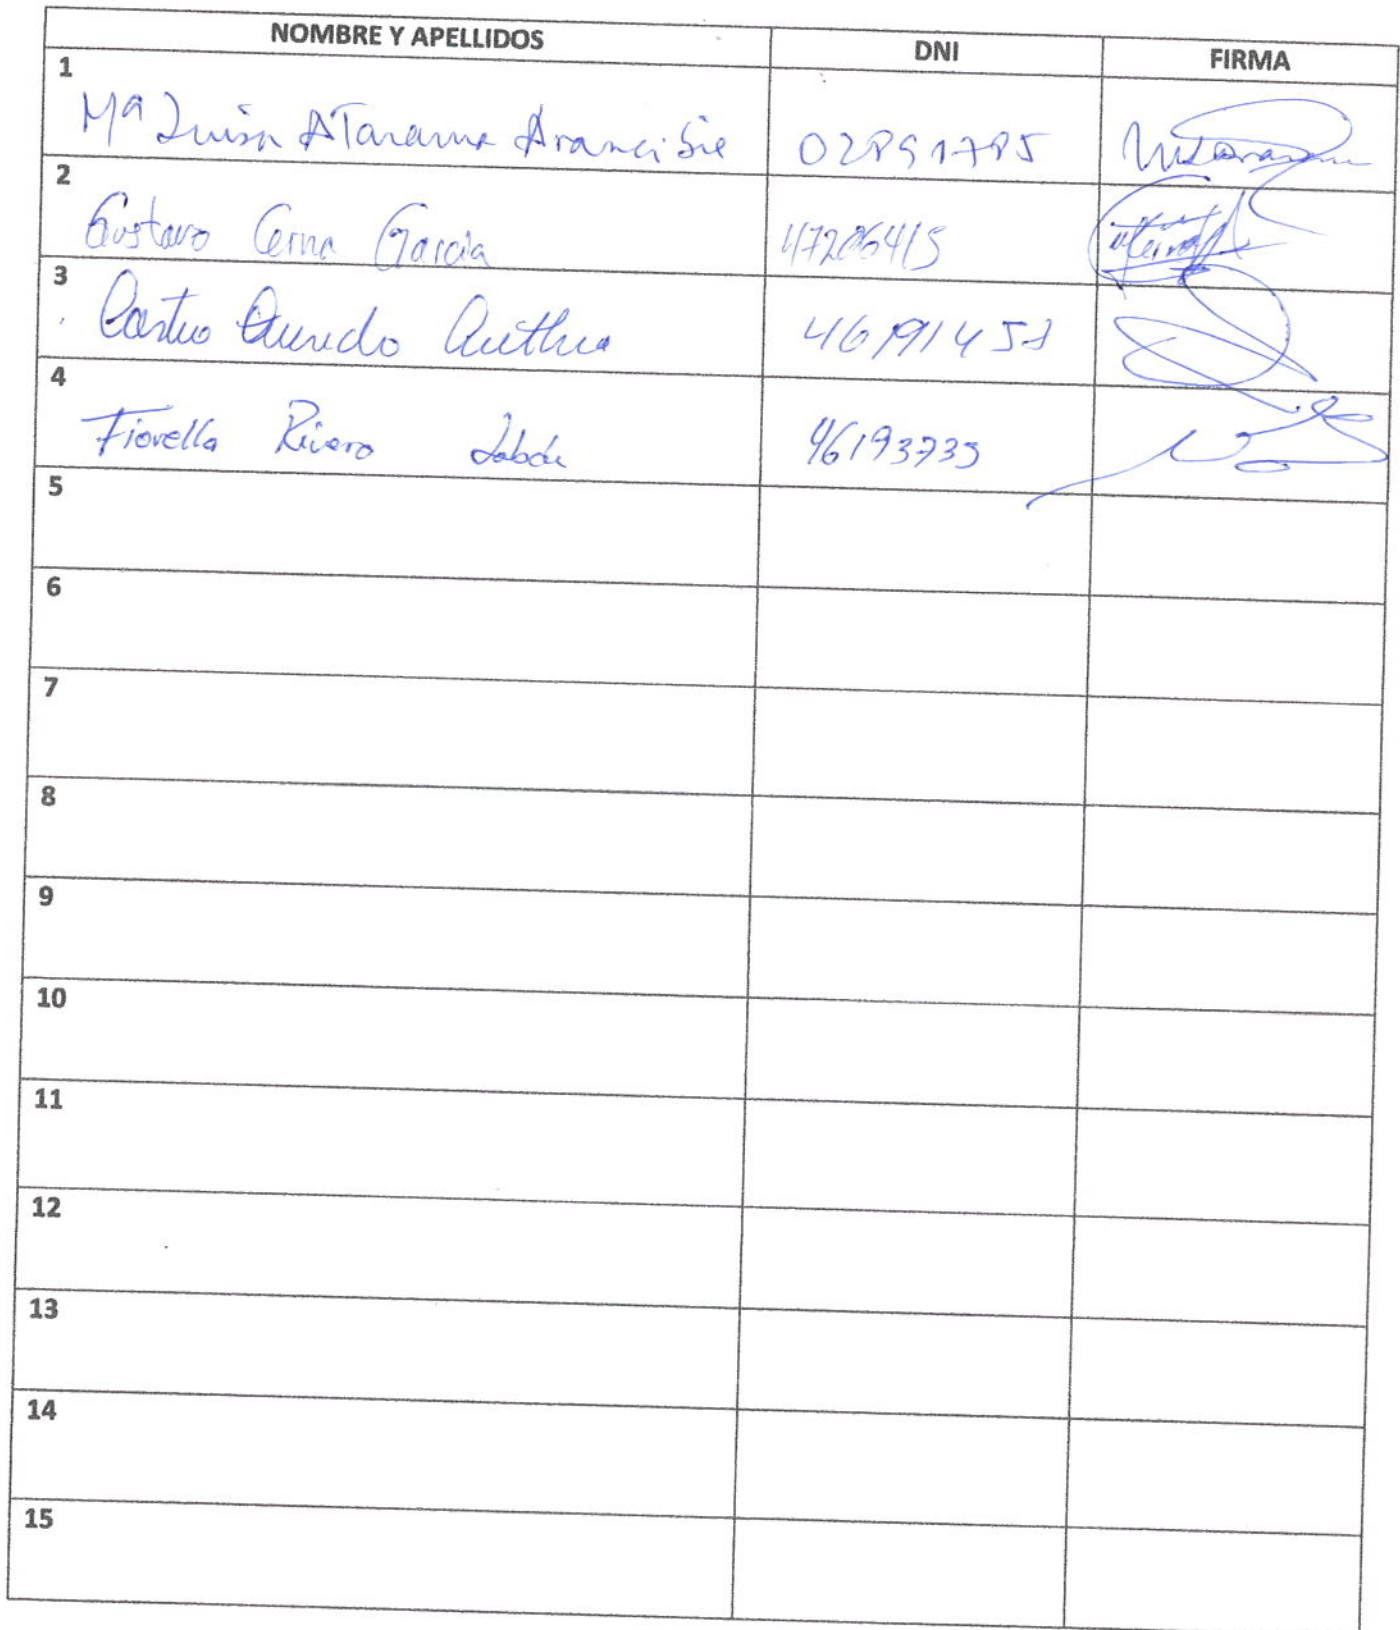 NOMBRE Y APELLIDOS DNI FIRMA
1
Mª Luisa ATarama Arancibie 02891785
2
Gustavo Cerna Garcia 47206415
3
Castro
4
Fiorella Rivero 46193735
5
6
7
8
9
10
11
12
13
14
15